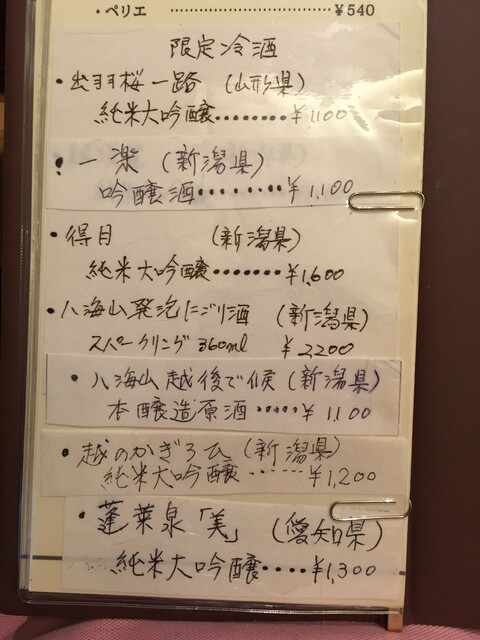 ・ペリエ ……………… ¥540
限定冷酒
・出羽桜一路 (山形県)
純米大吟醸……… ¥1,100
・一楽 (新潟県)
吟醸酒……… ¥1,100
・得月 (新潟県)
純米大吟醸……… ¥1,600
・八海山発泡にごり酒 (新潟県)
スパークリング 360ml ¥2200
・八海山越後で候 (新潟県)
本醸造原酒…… ¥1,100
・越のかぎろひ (新潟県)
純米大吟醸…… ¥1,200
・蓬莱泉「美」 (愛知県)
純米大吟醸…… ¥1,300